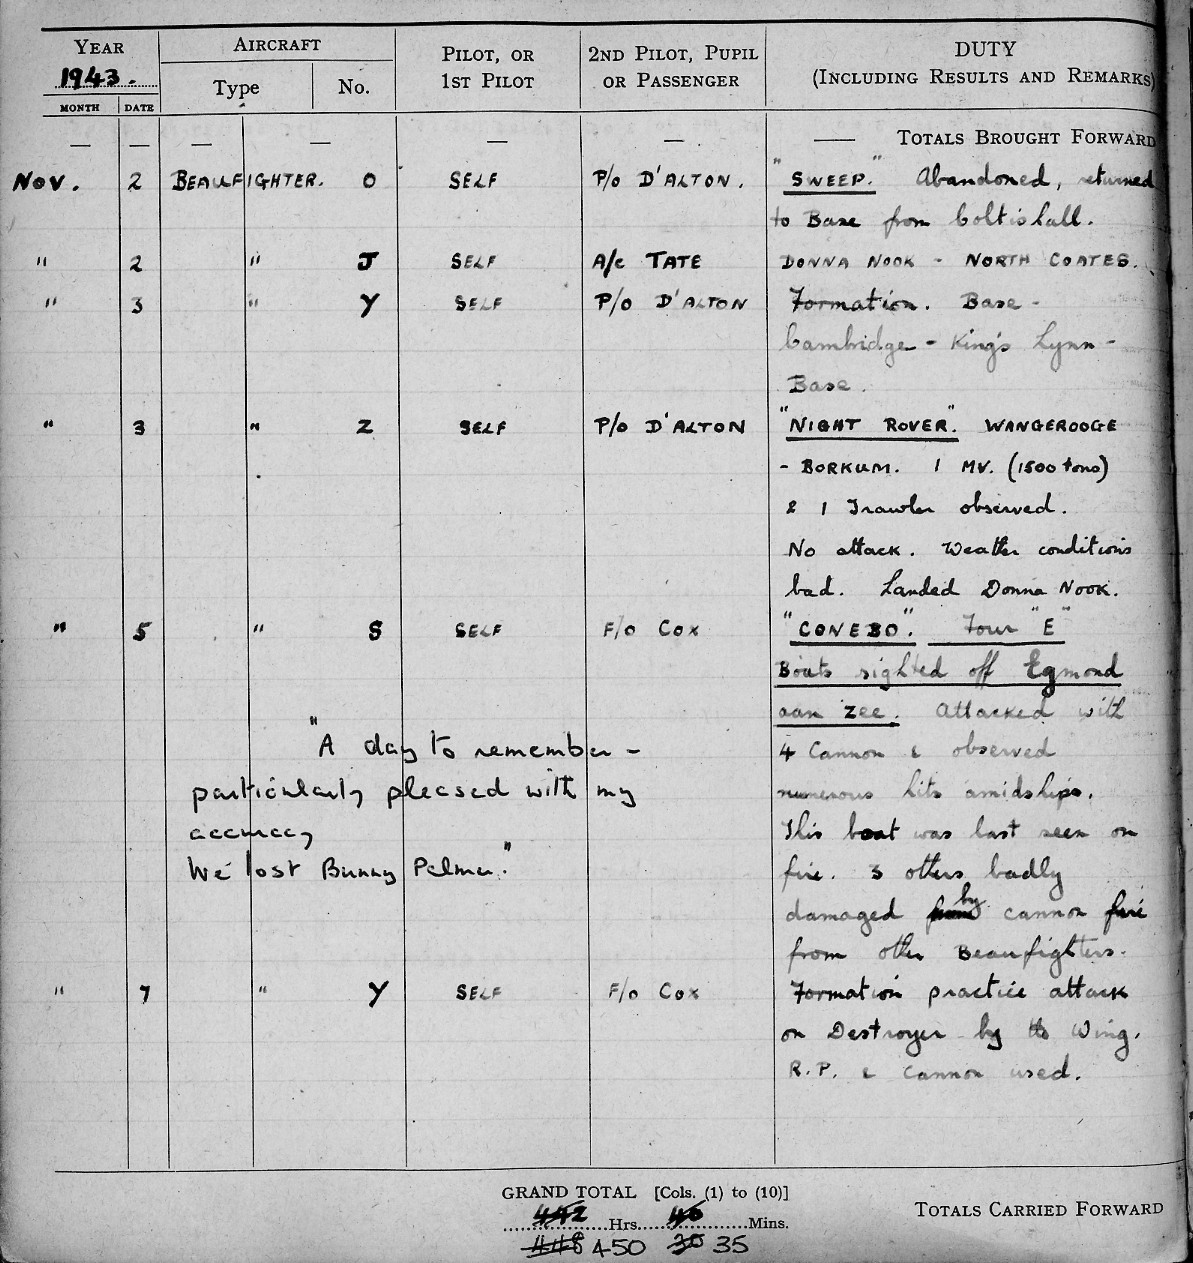 YEAR AIRCRAFT PILOT, OR 2ND PILOT, PUPIL DUTY
1943. Type No. 1ST PILOT OR PASSENGER (INCLUDING RESULTS AND REMARKS)
MONTH DATE
— — — — — — — TOTALS BROUGHT FORWARD
NOV. 2 BEAUFIGHTER. O SELF P/O D'ALTON. "SWEEP." Abandoned, returned
to Base from Coltishall.
" 2 " J SELF A/C TATE DONNA NOOK - NORTH COATES.
" 3 " Y SELF P/O D'ALTON Formation. Base -
Cambridge - King's Lynn -
Base.
" 3 " Z SELF P/O D'ALTON "NIGHT ROVER." WANGEROOGE
- BORKUM. 1 MV. (1500 tons)
& 1 Trawler observed.
No attack. Weather conditions
bad. Landed Donna Nook.
" 5 " S SELF F/O COX "CONEBO". Four "E"
Boats sighted off Egmond
aan Zee. Attacked with
"A day to remember - 4 Cannon & observed
particularly pleased with my numerous hits amidships.
accuracy This boat was last seen on
We lost Bunny Palmer." fire. 3 others badly
damaged from by cannon fire
from other Beaufighters.
" 7 " Y SELF F/O COX Formation practice attack
on Destroyer by the Wing.
R.P. & cannon used.
GRAND TOTAL [Cols. (1) to (10)]
442 Hrs. 40 Mins. TOTALS CARRIED FORWARD
448 450 30 35